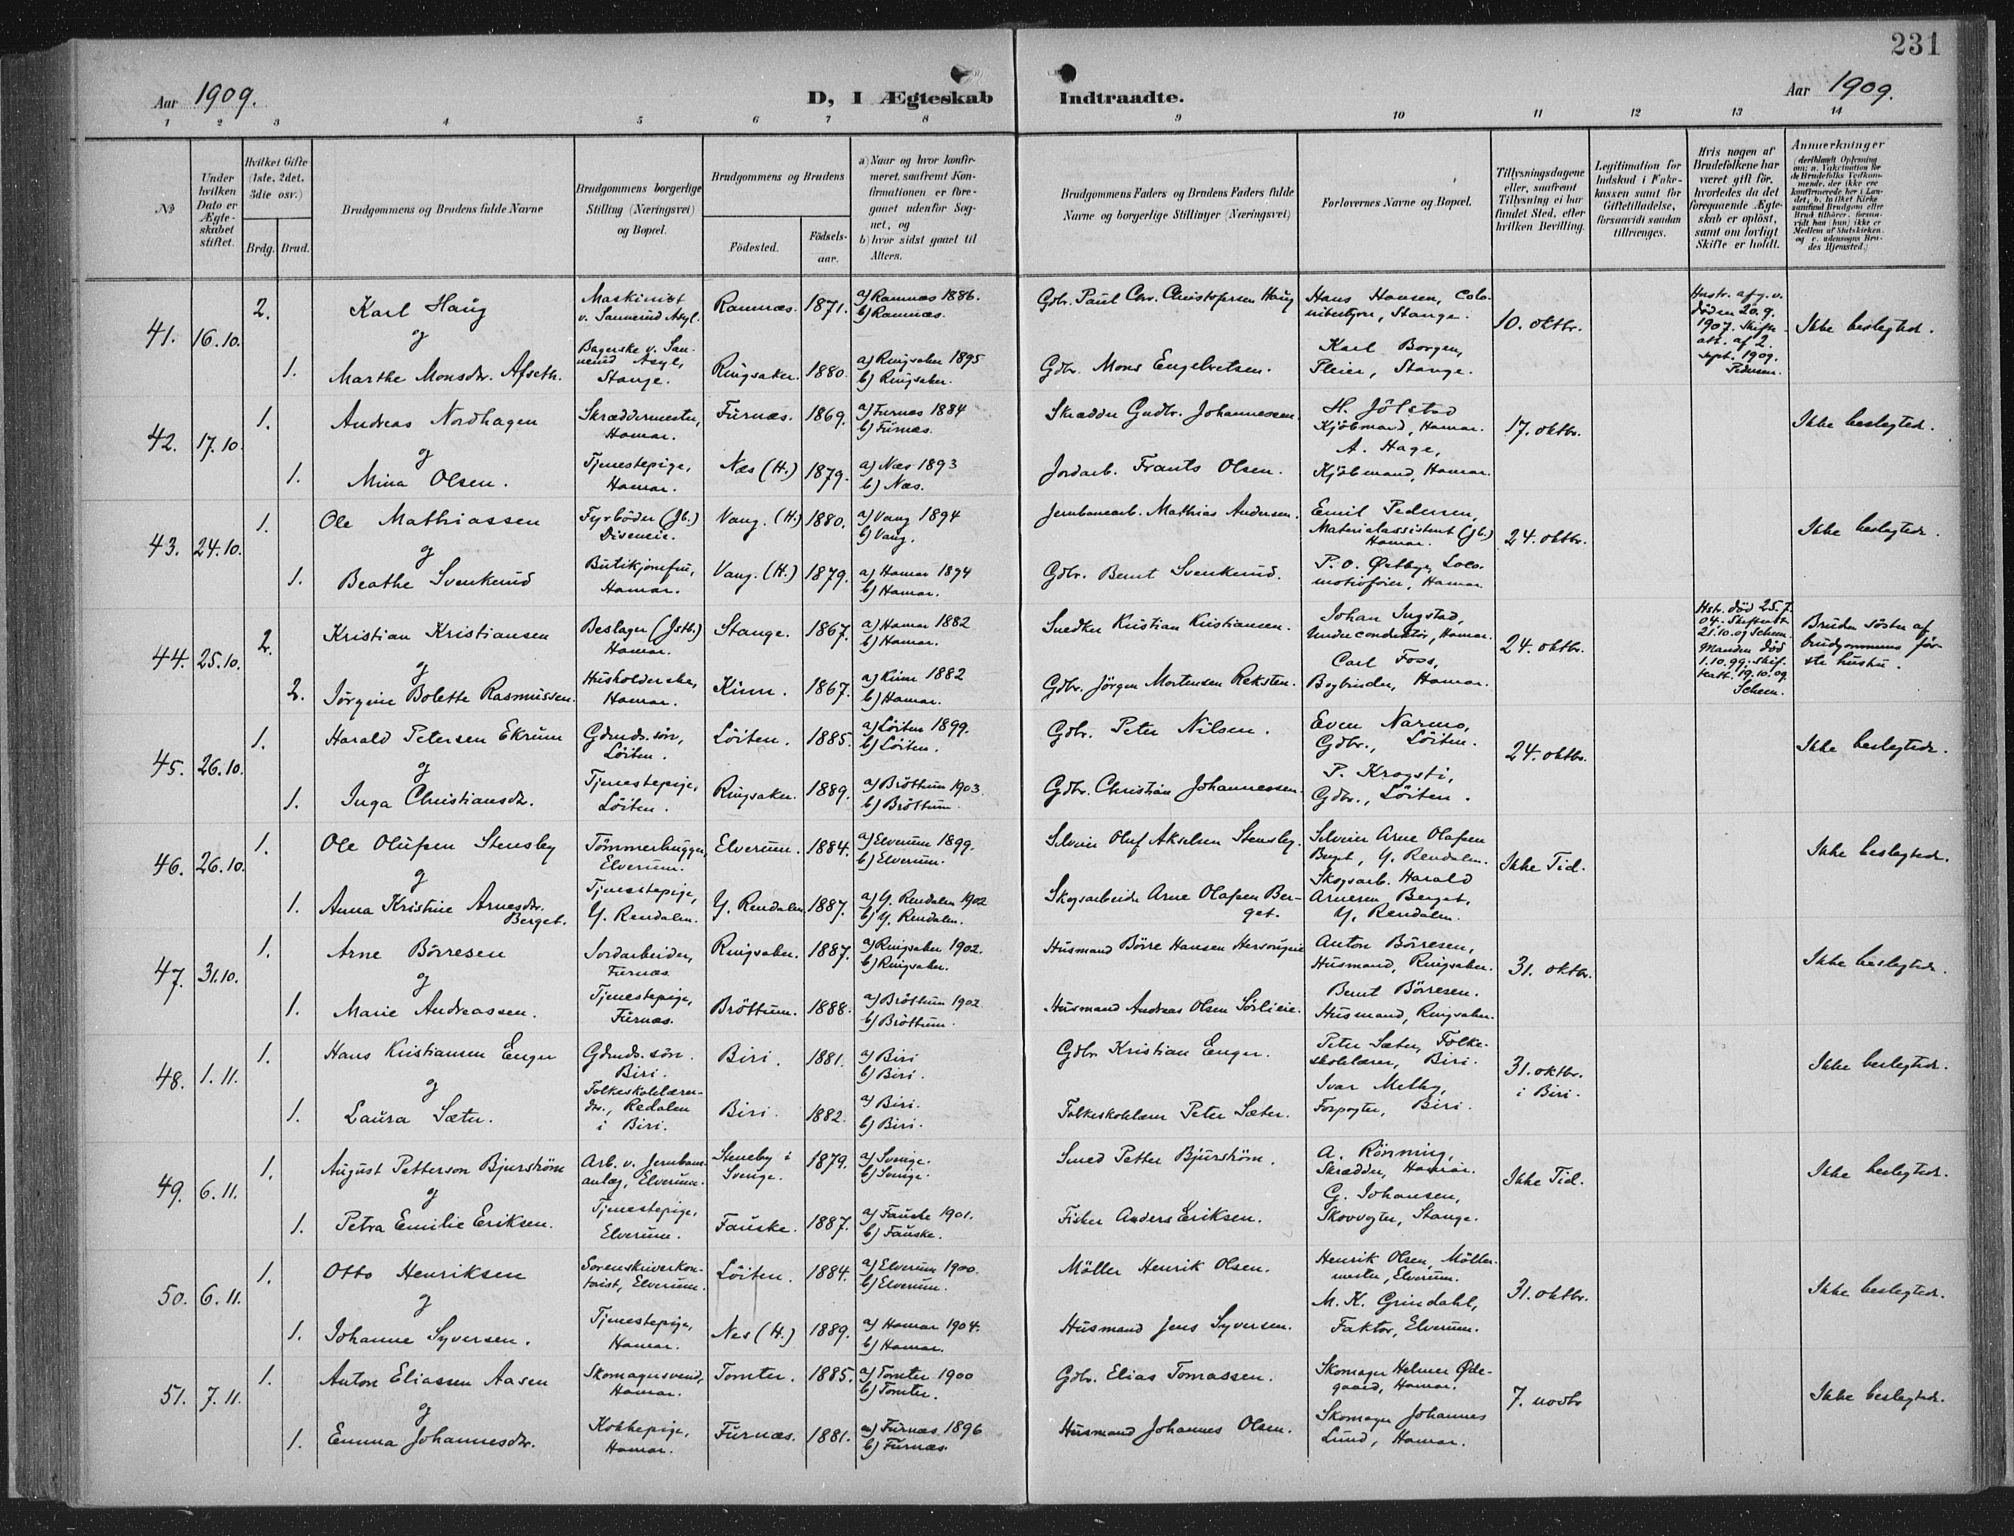 231
Aar 1909.
D, I Ægteskab Indtraadte.
Aar 1909.
1 2 3 4 5 6 7 8 9 10 11 12 13 14
№
Under hvilken Dato er Ægteskabet stiftet.
Hvilket Gifte (1ste, 2det, 3die osv.)
Brdg. Brud.
Brudgommens og Brudens fulde Navne
Brudgommens borgerlige Stilling (Næringsvei) og Bopæl.
Brudgommens og Brudens
Födested. Födsels-aar.
a) Naar og hvor konfirmeret, saafremt Konfirmationen er foregaaet udenfor Sognet, og
b) hvor sidst gaaet til Alters.
Brudgommens Faders og Brudens Faders fulde Navne og borgerlige Stillinger (Næringsvei)
Forlovernes Navne og Bopæl.
Tillysningsdagene eller, saafremt Tillysning ei har fundet Sted, efter hvilken Bevilling.
Legitimation for Indskud i Enkekassen samt for Giftetilladelse, forsaavidt saadan tiltrænges.
Hvis nogen af Brudefolkene har været gift för, hvorledes da det foregaaende Ægteskab er oplöst, samt om lovligt Skifte er holdt.
Anmærkninger
41. 16.10. 2. Karl Haug
Maskinist v. Sannerud Asyl. Ramnæs. 1871. a) Ramnæs 1886. b) Ramnæs.
Gdbr. Paul Chr. Christophersen Haug
Hans Hansen, Colonibestyrer, Stange.
10. oktbr.
Hustr. af g. v. døden 20.9. 1907. Skifteatt. af 2. sept. 1909. Pedersen.
Ikke beslegted.
og
1. Marthe Monsdr. Afseth.
Bagerske v. Sannerud Asyl, Stange. Ringsaker. 1880. a) Ringsaker 1895 b) Ringsaker.
Gdbr. Mons Engebretsen.
Karl Borgen, Pleier, Stange.
42. 17.10. 1. Andreas Nordhagen
Skræddermester, Hamar. Furnæs. 1869. a) Furnes 1884 b) Furnæs.
Skrædder Gudbr. Johannessen.
H. Jölstad Kjöbmand, Hamar.
17. oktbr.
Ikke beslegted.
og
1. Mina Olsen.
Tjenestepige, Hamar. Næs (H.) 1879. a) Næs 1893 b) Næs.
Jordarb. Frants Olsen.
A. Hage, Kjöbmand, Hamar.
43. 24.10. 1. Ole Mathiassen
Fyrböder (Jb.) Diseneie. Vang. (H.) 1880. a) Vang 1894 b) Vang.
Jernbanearb. Mathias Andersen.
Emil Pedersen, Materialassistent (Jb.) Hamar.
24. oktbr.
Ikke beslegtede.
og
1. Beathe Svenkerud
Butikjomfru, Hamar. Vang. (H.) 1879. a) Hamar 1894 b) Hamar.
Gdbr. Bernt Svenkerud.
P. O. Østbye, Locomotivfører, Hamar
44. 25.10. 2. Kristian Kristiansen
Beslager (Jstb.) Hamar. Stange. 1867. a) Hamar 1882 b) Hamar.
Snedker Kristian Kristiansen.
Johan Ingstad, Underconduktör, Hamar.
24. oktbr.
Hstr. død 25.7.04. Skifteatt. 21.10.09 Schem. Manden død 1.10.99. Skifteatt. 19.10.09. Schem.
Bruden søster af brudgommens første hustru.
og
2. Jørgine Bolette Rasmussen.
Husholderske, Hamar. Kinn. 1867. a) Kinn 1882 b) Hamar.
Gdbr. Jörgen Mortensen Reksten.
Carl Foss, Bogbinder, Hamar.
45. 26.10. 1. Harald Petersen Ekrum
Gdmds.søn, Löiten. Löiten. 1885. a) Löiten 1899. b) Löiten.
Gdbr. Peter Nilsen.
Even Narmo, Gdbr., Löiten.
24. oktbr.
Ikke beslegtede.
og
1. Inga Christiansdr.
Tjenestepige, Löiten. Ringsaker. 1889. a) Bröttum 1903. b) Bröttum.
Gdbr. Christian Johannessen.
P. Krogsti, Gdbr., Löiten.
46. 26.10. 1. Ole Olufsen Stensby
Tömmerhugger, Elverum. Elverum. 1884. a) Elverum 1899. b) Elverum.
Selveier Oluf Akselsen Stensby.
Selveier Arne Olafsen Berget, Y. Rendalen.
Ikke Tid.
Ikke beslegtede.
og
1. Anna Kristine Arnesdr. Berget.
Tjenestepige, Y. Rendalen. Y. Rendalen 1887. a) Y. Rendalen 1902 b) Y. Rendalen.
Skogsarbeider Arne Olafsen Berget.
Skogsarb. Harald Arnesen Berget, Y. Rendalen.
47. 31.10. 1. Arne Börresen
Jordarbeider, Furnæs Ringsaker. 1887. a) Ringsaker 1902. b) Ringsaker.
Husmand Börre Hansen
Anton Börresen, Husmand, Ringsaker.
31. oktbr.
Ikke beslegtede.
og
1. Marie Andreassen.
Tjenestepige, Furnæs. Bröttum. 1888. a) Bröttum 1902 b) Bröttum.
Husmand Andreas Olsen Sørlieie.
Bernt Börresen. Husmand, Ringsaker.
48. 1.11. 1. Hans Kristiansen Enger
Gdmds.søn. Biri. Biri. 1881. a) Biri b) Biri.
Gdbr Kristian Enger.
Peter Sæter, Folkeskolelærer, Biri.
31. oktbr. i Biri.
Ikke beslegtede.
og
1. Laura Sæter.
Folkeskolelærerdr., Redalen i Biri. Biri. 1882. a) Biri. b) Biri.
Folkeskolelærer Peter Sæter.
Ivar Melby, Forpagter, Biri.
49. 6.11. 1. August Petterson Bjurström
Arb. v. Jernbaneanlæg, Elverum. Steneby i Sverige. 1879. a) Sverige. b) Sverige.
Smed Petter Bjurström.
A. Rönning, Skrædder, Hamar.
Ikke Tid.
Ikke beslegtede.
og
1. Petra Emilie Eriksen.
Tjenestepige, Elverum. Fauske. 1887. a) Fauske 1901. b) Fauske.
Fisker Anders Eriksen.
G. Johansen, Skovvogter, Stange.
50. 6.11. 1. Otto Henriksen
Sorenskriverkontorist, Elverum. Löiten. 1884. a) Elverum 1900. b) Elverum.
Möller Henrik Olsen.
Henrik Olsen, Möllermester, Elverum.
31. oktbr.
Ikke beslegtede.
og
1. Johanne Syversen.
Tjenestepige, Hamar. Nes (H.) 1889. a) Hamar 1904. b) Hamar.
Husmand Jens Syversen.
M. K. Grindahl, Faktor, Elverum.
51. 7.11. 1. Anton Eliassen Aasen
Skomagersvend, Hamar. Tomter. 1885. a) Tomter 1900 b) Tomter.
Gdbr. Elias Tomassen.
Skomager Helmer Ødegaard, Hamar.
7. novbr
Ikke beslegtede.
og
1. Emma Johannesdr.
Kokkepige, Hamar. Furnæs. 1881. a) Furnæs 1896 b) Furnæs.
Husmand Johannes Olsen.
Skomager Johannes Lund, Hamar.